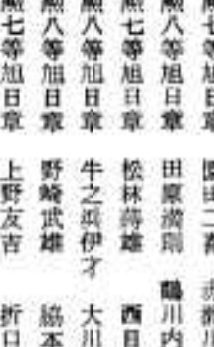 勲七等旭日章
勲八等旭日章 田原満則 鶴川内
勲七等旭日章 松林蒔雄 西目
勲八等旭日章 牛之浜伊才 大川
勲八等旭日章 野崎武雄 脇本
勲七等旭日章 上野友吉 折口